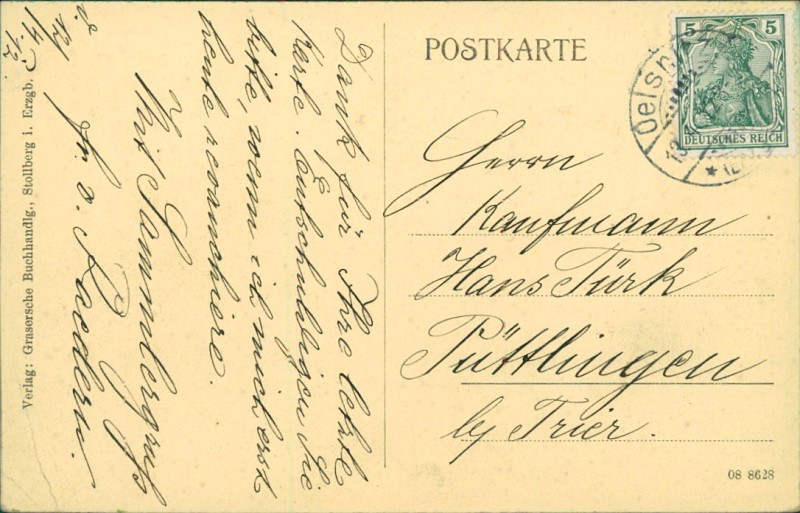 POSTKARTE
5 5
DEUTSCHES REICH
Oelsn
Herrn
Kaufmann
Hans Türk
Püttlingen
by Trier.
08 8628
Dank für Ihre letzte
Karte. Entschuldigen Sie
bitte, wenn ich mich erst
heute revanchiere.
Mit Sammlergruß
fr. v. Raedern.
14. 12.
Verlag: Grasersche Buchhandlg., Stollberg i. Erzgb.